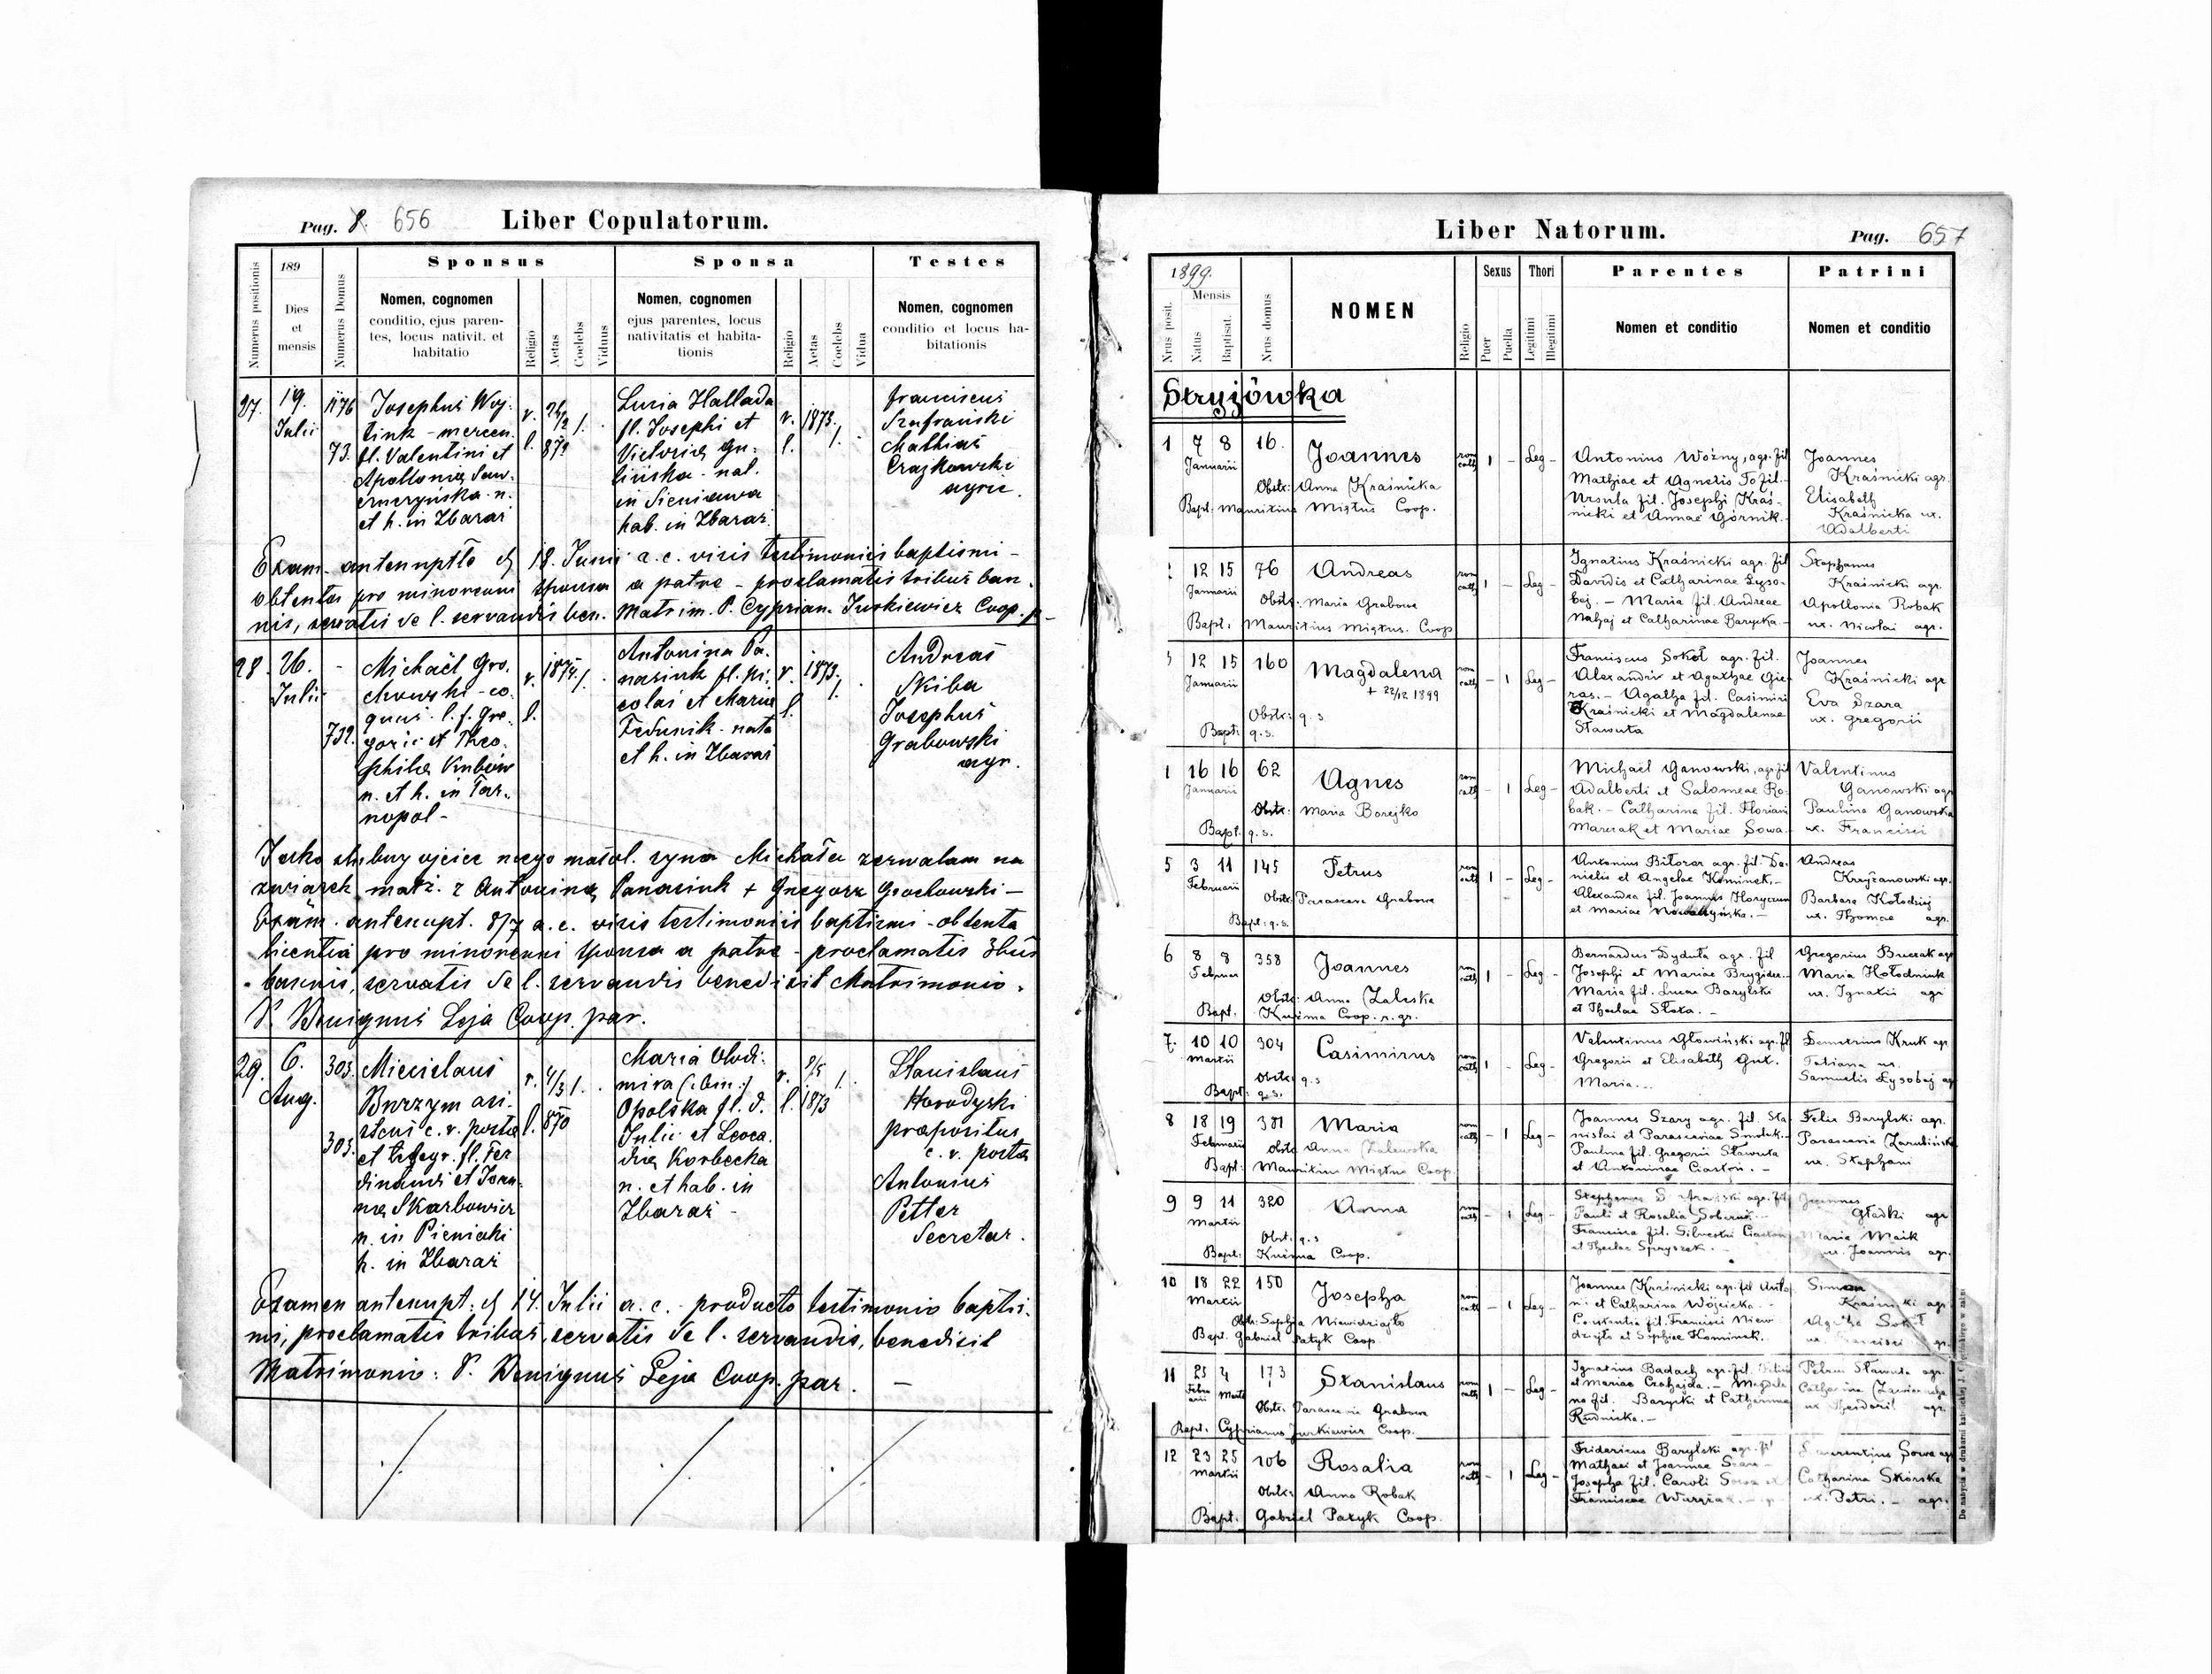 Pag. 8. 656 Liber Copulatorum.
Numerus positionis
189
Dies
et
mensis
Numerus Domus
Sponsus
Nomen, cognomen
conditio, ejus paren-
tes, locus nativit. et
habitatio
Religio
Aetas
Coelebs
Viduus
Sponsa
Nomen, cognomen
ejus parentes, locus
nativitatis et habita-
tionis
Religio
Aetas
Coelebs
Vidua
Testes
Nomen, cognomen
conditio et locus ha-
bitationis
27. 19. Julii
73.
Josephus Woj-
tiuk - mercen.
fl. Valentini et
n.
et h. in Zbaraż
r. l.
Lucia Hallada
fl. Josephi et
Victoria
nat.
in Sieniawa
hab. in Zbaraż
r. l. 1873.
Franciscus
Szafrański
Mathias
Czajkowski
agric.
Exam. antenuptle 18. Junii a. c. visis testimoniis baptismi -
obtenta pro minorenni sponsa a patre - proclamatis tribus ban-
nis, servatis de l. servandis ben. Matrim. P. Cyprian. Jurkiewicz Coop. p.
28. 26. Julii
732.
Michaël Gro-
chowski - co-
quus. l. f. Gre-
gorii et Theo-
phila
n. et h. in Tar-
nopol -
r. l. 1874.
Antonina Pa-
nasiuk fl. Ni-
colai et Maria
Fedunik - nata
et h. in Zbaraż
r. l. 1873.
Andreas
Skiba
Josephus
Grabowski
agr.
Jako ślubny ojciec mego małol. syna Michała zezwalam na
związek małż. z Antoniną Panasiuk + Gregorz Grochowski -
Exam. antenupt. 8/7 a. c. visis testimoniis baptismi - obtenta
licentia pro minorenni sponsa a patre - proclamatis 3bus
bannis, servatis de l. servandis benedixit Matrimonio.
P. Benignus Leja Coop. par.
29. 6. Aug.
303.
303.
Miecislaus
Burzym assi-
stens c. r. posta
et telegr. fl. Fer-
dinandi et Joan-
na Skarbowicz
n. in Pieniaki
h. in Zbaraż
r. l. 4/3 870
Maria Vlodi-
mira (: bin :)
Opolska fl. d.
Julii et Leoca-
dia Korbecka
n. et hab. in
Zbaraż -
r. l. 1873
Stanislaus
Horodyski
praepositus
c. r. posta
Antonius
Petter
Secretar.
Examen antenupt. 14. Julii a. c. - producto testimonio bapti-
mi, proclamatis tribus, servatis de l. servandis, benedixit
Matrimonio: P. Benignus Leja Coop. par. —
Liber Natorum. Pag. 657
Nrus posit.
1899.
Mensis
Natus
Baptisat.
Nrus domus
NOMEN
Religio
Sexus
Puer
Puella
Thori
Legitimi
Illegitimi
Parentes
Nomen et conditio
Patrini
Nomen et conditio
Stryjówka
1 7 8 Januarii 16. Joannes rom cath 1 - Leg -
Obstr: Anna Kraśnicka
Bapt: Mauritius Miętus Coop.
Antonius Woźny, agr. fil
Mathiae et Agnetis To fil.
Ursula fil. Josephi Kraś-
nicki et Annae Górnik.
Joannes
Kraśnicki agr.
Elisabeth
Kraśnicka ux.
Adalberti
12 15 Januarii 76 Andreas rom cath 1 - Leg -
Obstr: Maria Grabowa
Bapt. Mauritius Miętus. Coop
Ignatius Kraśnicki agr. fil
Davidis et Catharinae Łyso-
bej. - Maria fil. Andreae
Nahaj et Catharinae Barycka -
Stephanus
Kraśnicki agr.
Apollonia Robak
ux. Nicolai agr.
12 15 Januarii 160 Magdalena rom cath - 1 Leg -
+ 22/12 1899
Obstr: q. s
Bapt: q. s.
Franciscus Sokół agr. fil.
Alexandri et Agathae Gie-
ras. - Agatha fil. Casimiri
Kraśnicki et Magdalenae
Sławuta
Joannes
Kraśnicki agr
Eva Szara
ux. Gregorii
16 16 Januarii 62 Agnes rom cath - 1 Leg -
Obstr: Maria Borejko
Bapt. q. s.
Michaël Ganowski, agr. fil
Adalberti et Salomeae Ro-
bak. - Catharina fil. Floriani
Marczak et Mariae Sowa.
Valentinus
Ganowski agr
Paulina Ganowska
ux. Francisci
5 3 11 Februarii 145 Petrus rom cath 1 - Leg -
Obstr: Parasceve Grabowa
Bapt: q. s.
Antonius Biłozor agr. fil. Da-
nielis et Angelae Kominek. -
Alexandra fil. Joannis
et Mariae
Andreas
Kryżanowski agr.
Barbara Kołodziej
ux. Thomae agr.
6 8 8 Februar 358 Joannes rom cath 1 - Leg -
Obstr: Anna Zaleska
Bapt. Kuźma Coop. r. gr.
Bernardus Dyduła agr. fil
Josephi et Mariae Brygider.
Maria fil. Lucae Barylski
et Theclae Słota. -
Gregorius Buczak agr
Maria Hołodniuk
ux. Ignatii agr
7. 10 10 Martii 304 Casimirus rom cath 1 - Leg -
Obstr: q. s
Bapt: q. s.
Valentinus Głowiński agr. fl
Gregorii et Elisabeth Gut.
Maria...
Demetrius Kruk agr
Tatiana ux.
Samuelis Łysobej agr
8 18 19 Februarii 381 Maria rom cath - 1 Leg -
Obstr Anna Zalewska
Bapt: Mauritius Miętus Coop.
Joannes Szary agr. fil. Sta-
nislai et Parasceviae Smoluk.
Paulina fil. Gregorii Sławuta
et Antoninae Ciastoń. -
Felix Barylski agr.
Parascevia Zarubińska
ux. Stephani
9 9 11 Martii 320 Anna rom cath - 1 Leg -
Obst: q. s
Bapt: Kuźma Coop.
Stephanus agr. fil
Pauli et Rosalia
Francisca fil. Silvestri Ciastoń
et Theclae Spryszek. -
Joannes
Gładki agr
Maria Maik
ux. Joannis agr.
10 18 22 Martii 150 Josepha rom cath - 1 Leg -
Obstr: Sophia Niewidziajło
Bapt. Gabriel Patyk Coop.
Joannes Kraśnicki agr. fil Anto-
ni et Catharina Wójcicka. -
Constantia fil. Francisci Niew-
dziajło et Sophiae Kominek.
Simon
Kraśnicki agr
Agatha Sokół
ux. Francisci agr.
11 25 Februarii 4 Martii 173 Stanislaus rom cath 1 - Leg -
Obstr. Parascevia Grabowa
Bapt. Cyprianus Jurkiewicz Coop.
Ignatius Badach agr. fil.
et Mariae - Magdale-
na fil. Barycki et Catharinae
Rudnicka. -
Petrus Sławuta agr.
Catharina
ux Theodori agr.
12 23 25 Martii 106 Rosalia rom cath - 1 Leg -
Obstr: Anna Robak
Bapt. Gabriel Patyk Coop.
Fridericus Barylski agr. fil
Mathaei et Joannae
Josepha fil. Caroli Sowa et
Franciscae
Laurentius Sowa agr
Catharina Skórska
ux. Petri. - agr.